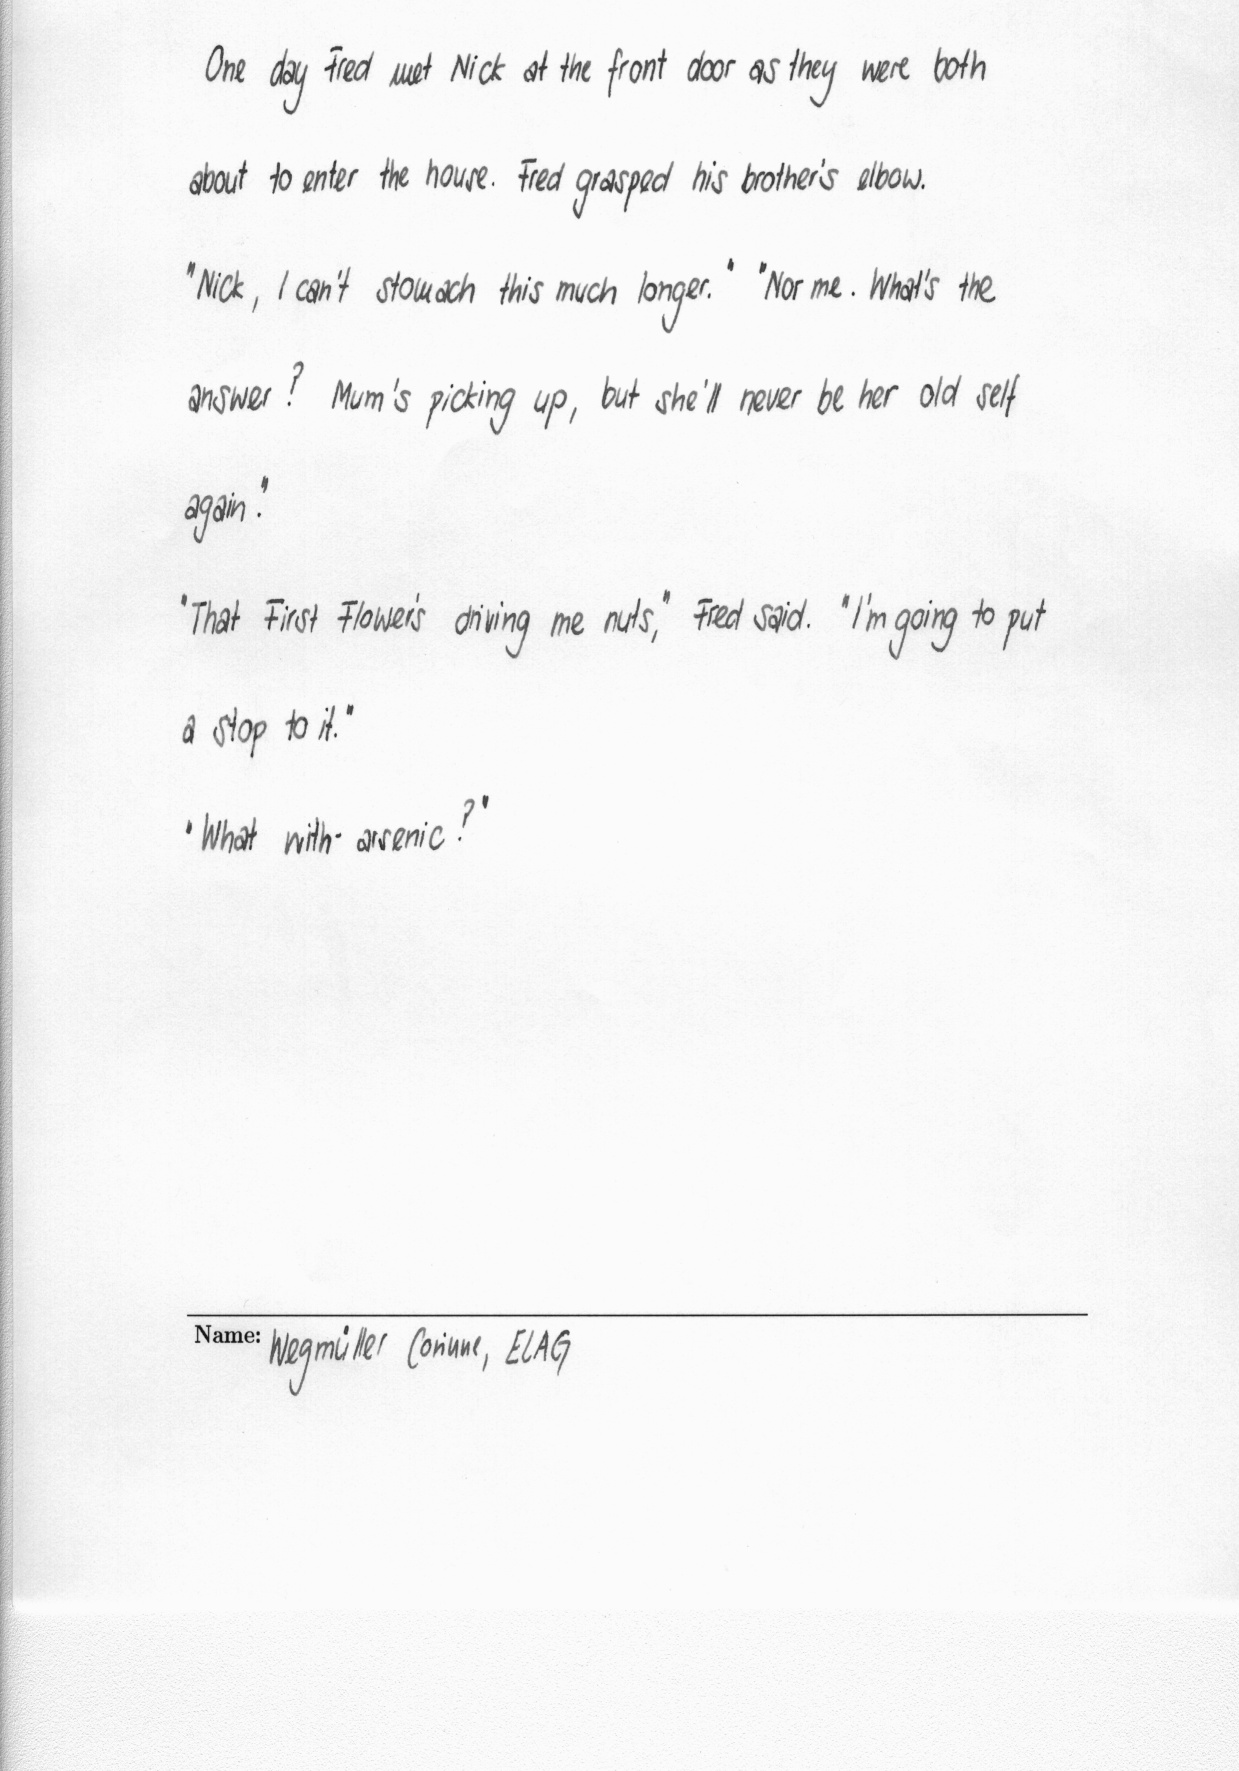 One day Fred met Nick at the front door as they were both
about to enter the house. Fred grasped his brother's elbow.
"Nick, I can't stomach this much longer." "Nor me. What's the
answer? Mum's picking up, but she'll never be her old self
again."
"That First Flower's driving me nuts," Fred said. "I'm going to put
a stop to it."
"What with- arsenic?"
Name: Wegmüller Corinne, ELAG